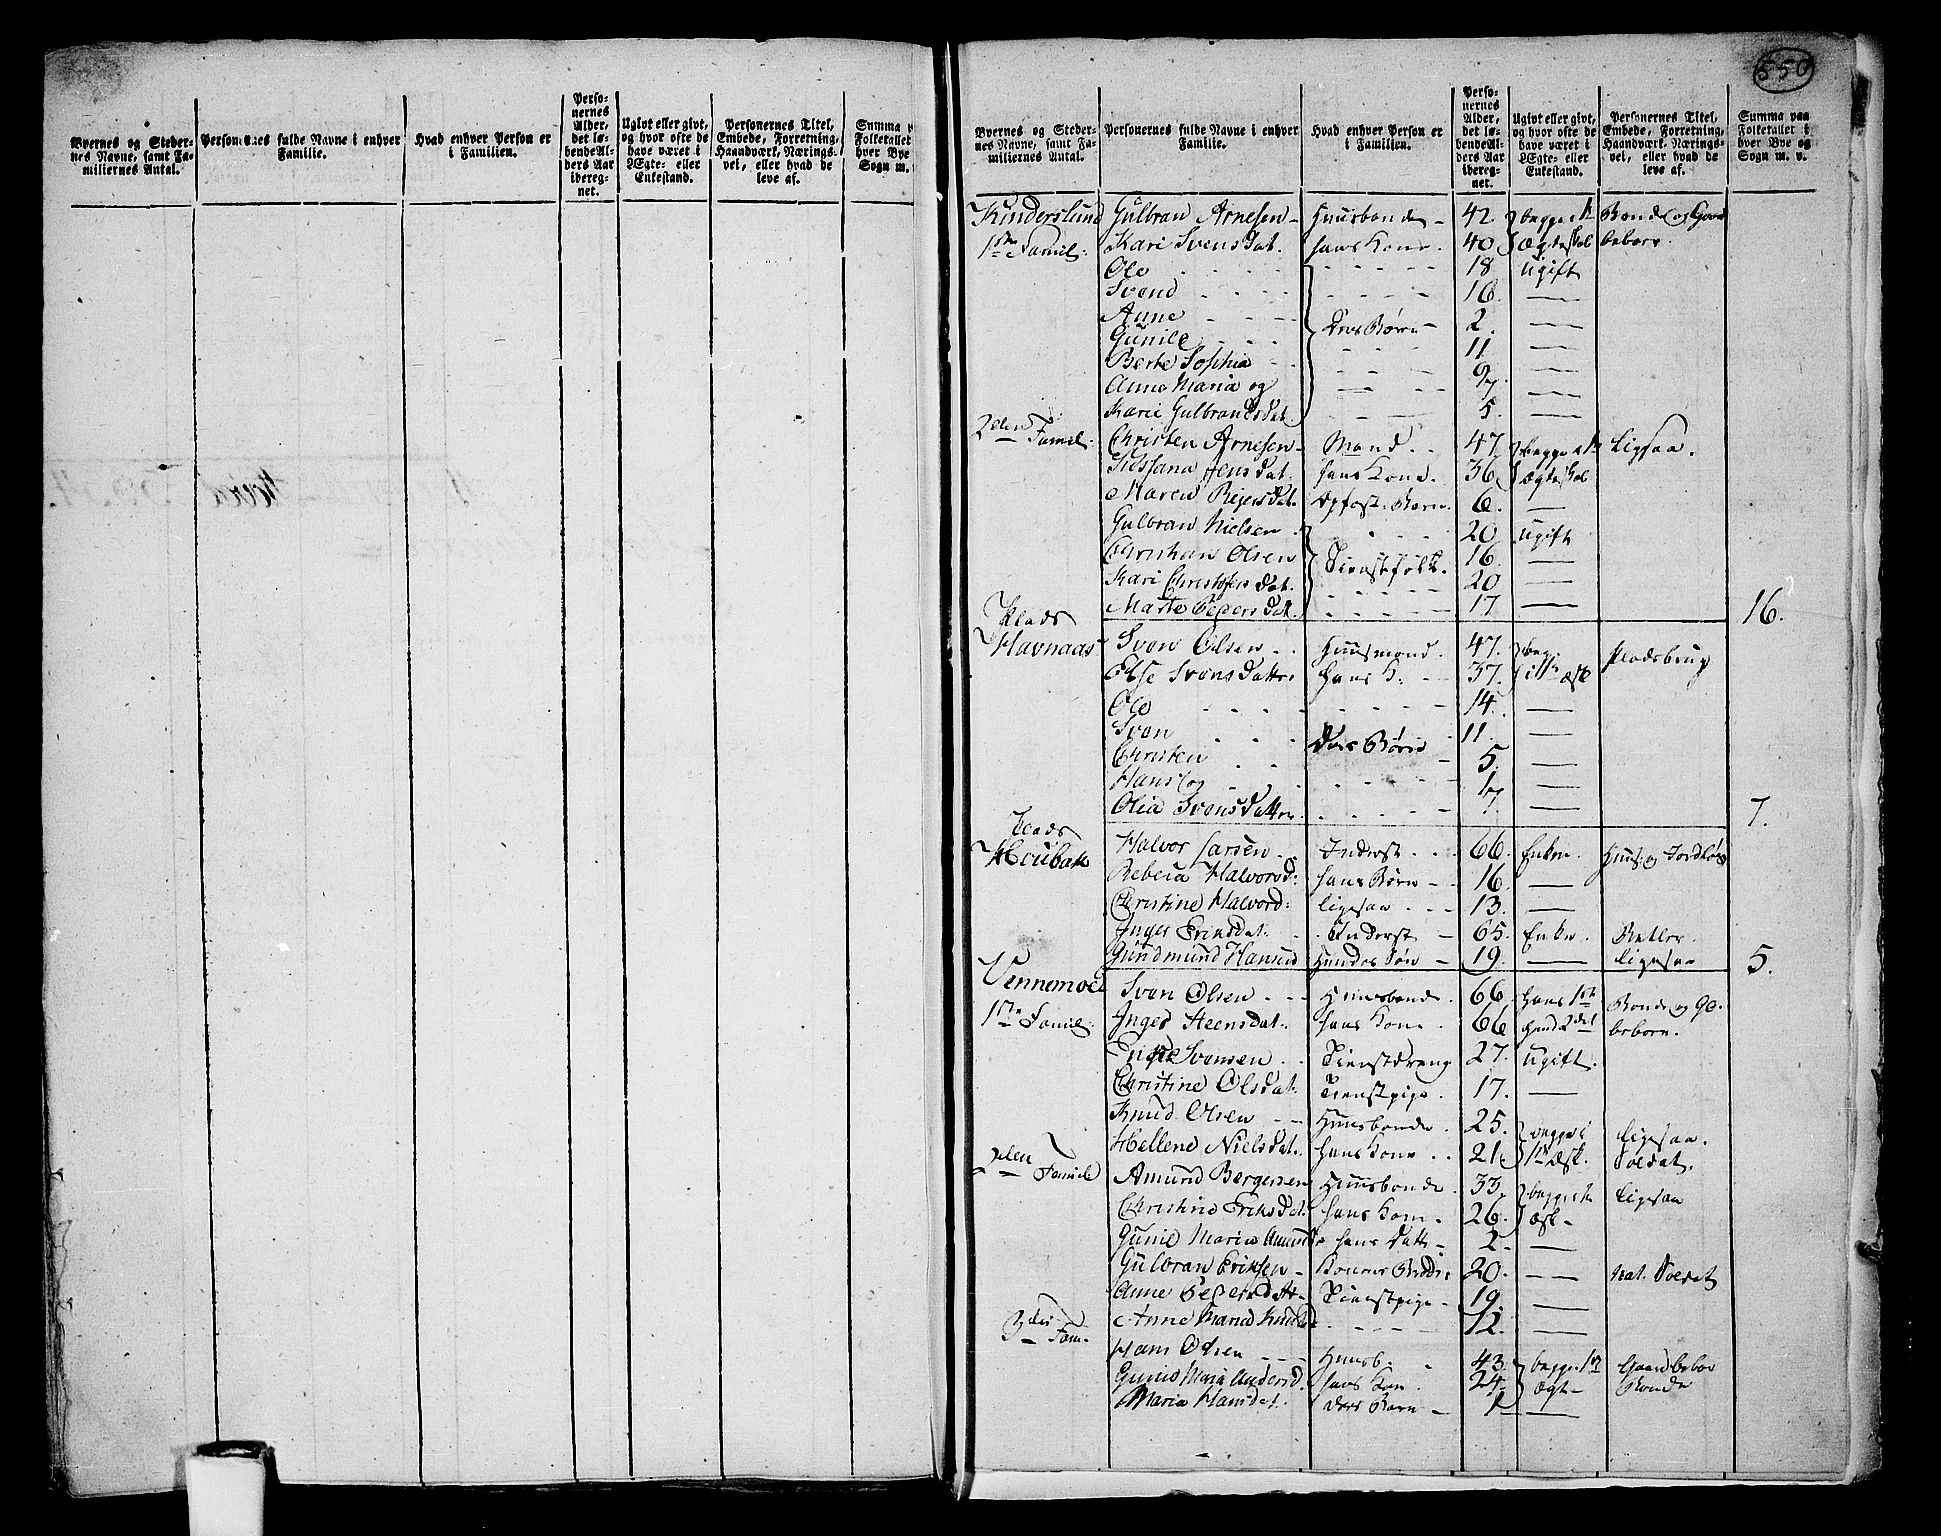 550
Byernes og Stedernes Navne, samt Familiernes Antal.
Personernes fulde Navne i enhver Familie.
Hvad enhver Person er i Familien.
Personernes Alder, det løbendeAlders Aar iberegnet.
Ugivt eller givt, og hvor ofte de have været i Ægte- eller Enkestand.
Personernes Titel, Embede, Forretning, Haandværk, Næringsvei, eller hvad de leve af.
Summa Folketallet hver Bye Sogn m.
Byernes og Stedernes Navne, samt Familiernes Antal.
Personernes fulde Navne i enhver Familie.
Hvad enhver Person er i Familien.
Personernes Alder, det løbendeAlders Aar iberegnet.
Ugivt eller givt, og hvor ofte de have været i Ægte- eller Enkestand.
Personernes Titel, Embede, Forretning, Haandværk, Næringsvei, eller hvad de leve af.
Summa paa Folketallet i hver Bye og Sogn m. v.
Kinderslund Gulbran Arnesen Huusbonde 42. begge Bonde og
1ste Famil: Kari Svensdat. hans Kone. 40 Ægteskab beboer
Ole 18 ugift
Svend 16
Anne 2.
Gunile Deres Børn 11
Berte Sophia 9
Anne Maria og 7
Karie Gulbrandsdat. 5.
2den Famil: Christen Arnesen Mand 47. begge Ligesaa.
Jensdat. hans Kone. 36 Ægteskab
Maren Reiersdat. Opfost. Barn. 6.
Gulbran Nielsen 20 ugift
Christian Olsen Tienestefolk. 16.
Kari Christophersdat. 20
Marte Pedersdat. 17 16.
Plads
Havnaas Sven Olsen Huusmand. 47. Pladsbrug
Else Svensdatter hans K. 37.
Ole 14.
Sven 11.
Christen Deres Børn 5.
Hans og 1
Olia Svensdatter 7. 7.
Plads
Halvor Larsen Inderst 66. Enkem. Huus og Jordløs
Rebeca Halvorsd: hans Børn 16
Christine Halvord: ligesaa 13.
Inger Eriksdat. Inderst 65. Enke.
Gundmund Hansen Hendes Søn 19. ligesaa 5.
Vennemoe
1ste Famil: Sven Olsen Huusbonde 66. hans 1ste Bonde og
Inger Steensdat. hans Kone 66 hend 2det beboer.
Svensen Tienestdreng 27. ugift.
Christine Olsdat. Tienestpige. 17.
Knud Olsen Huusbonde. 25. begge i Ligesaa.
Hellene Nielsdat. hans Kone 21. Soldat.
2den Famile Amund Bergersen Huusbonde. 33. begge Ligesaa
Christine Eriksdat. hans Kone 26.
Gunil Maria hans Datt 2
Gulbran Eriksen Konens Brodr: 20. nat. Soldat
Anne Pedersdatt. Tienestpige 19.
Anne Maria 12.
3die Fam. Hans Olsen Huusb. 43. begge Gaardbeboer
Gunil Maria Andersd. hans Kon 24. Ægt Bonde
Maria Hansdat. deres Barn 1